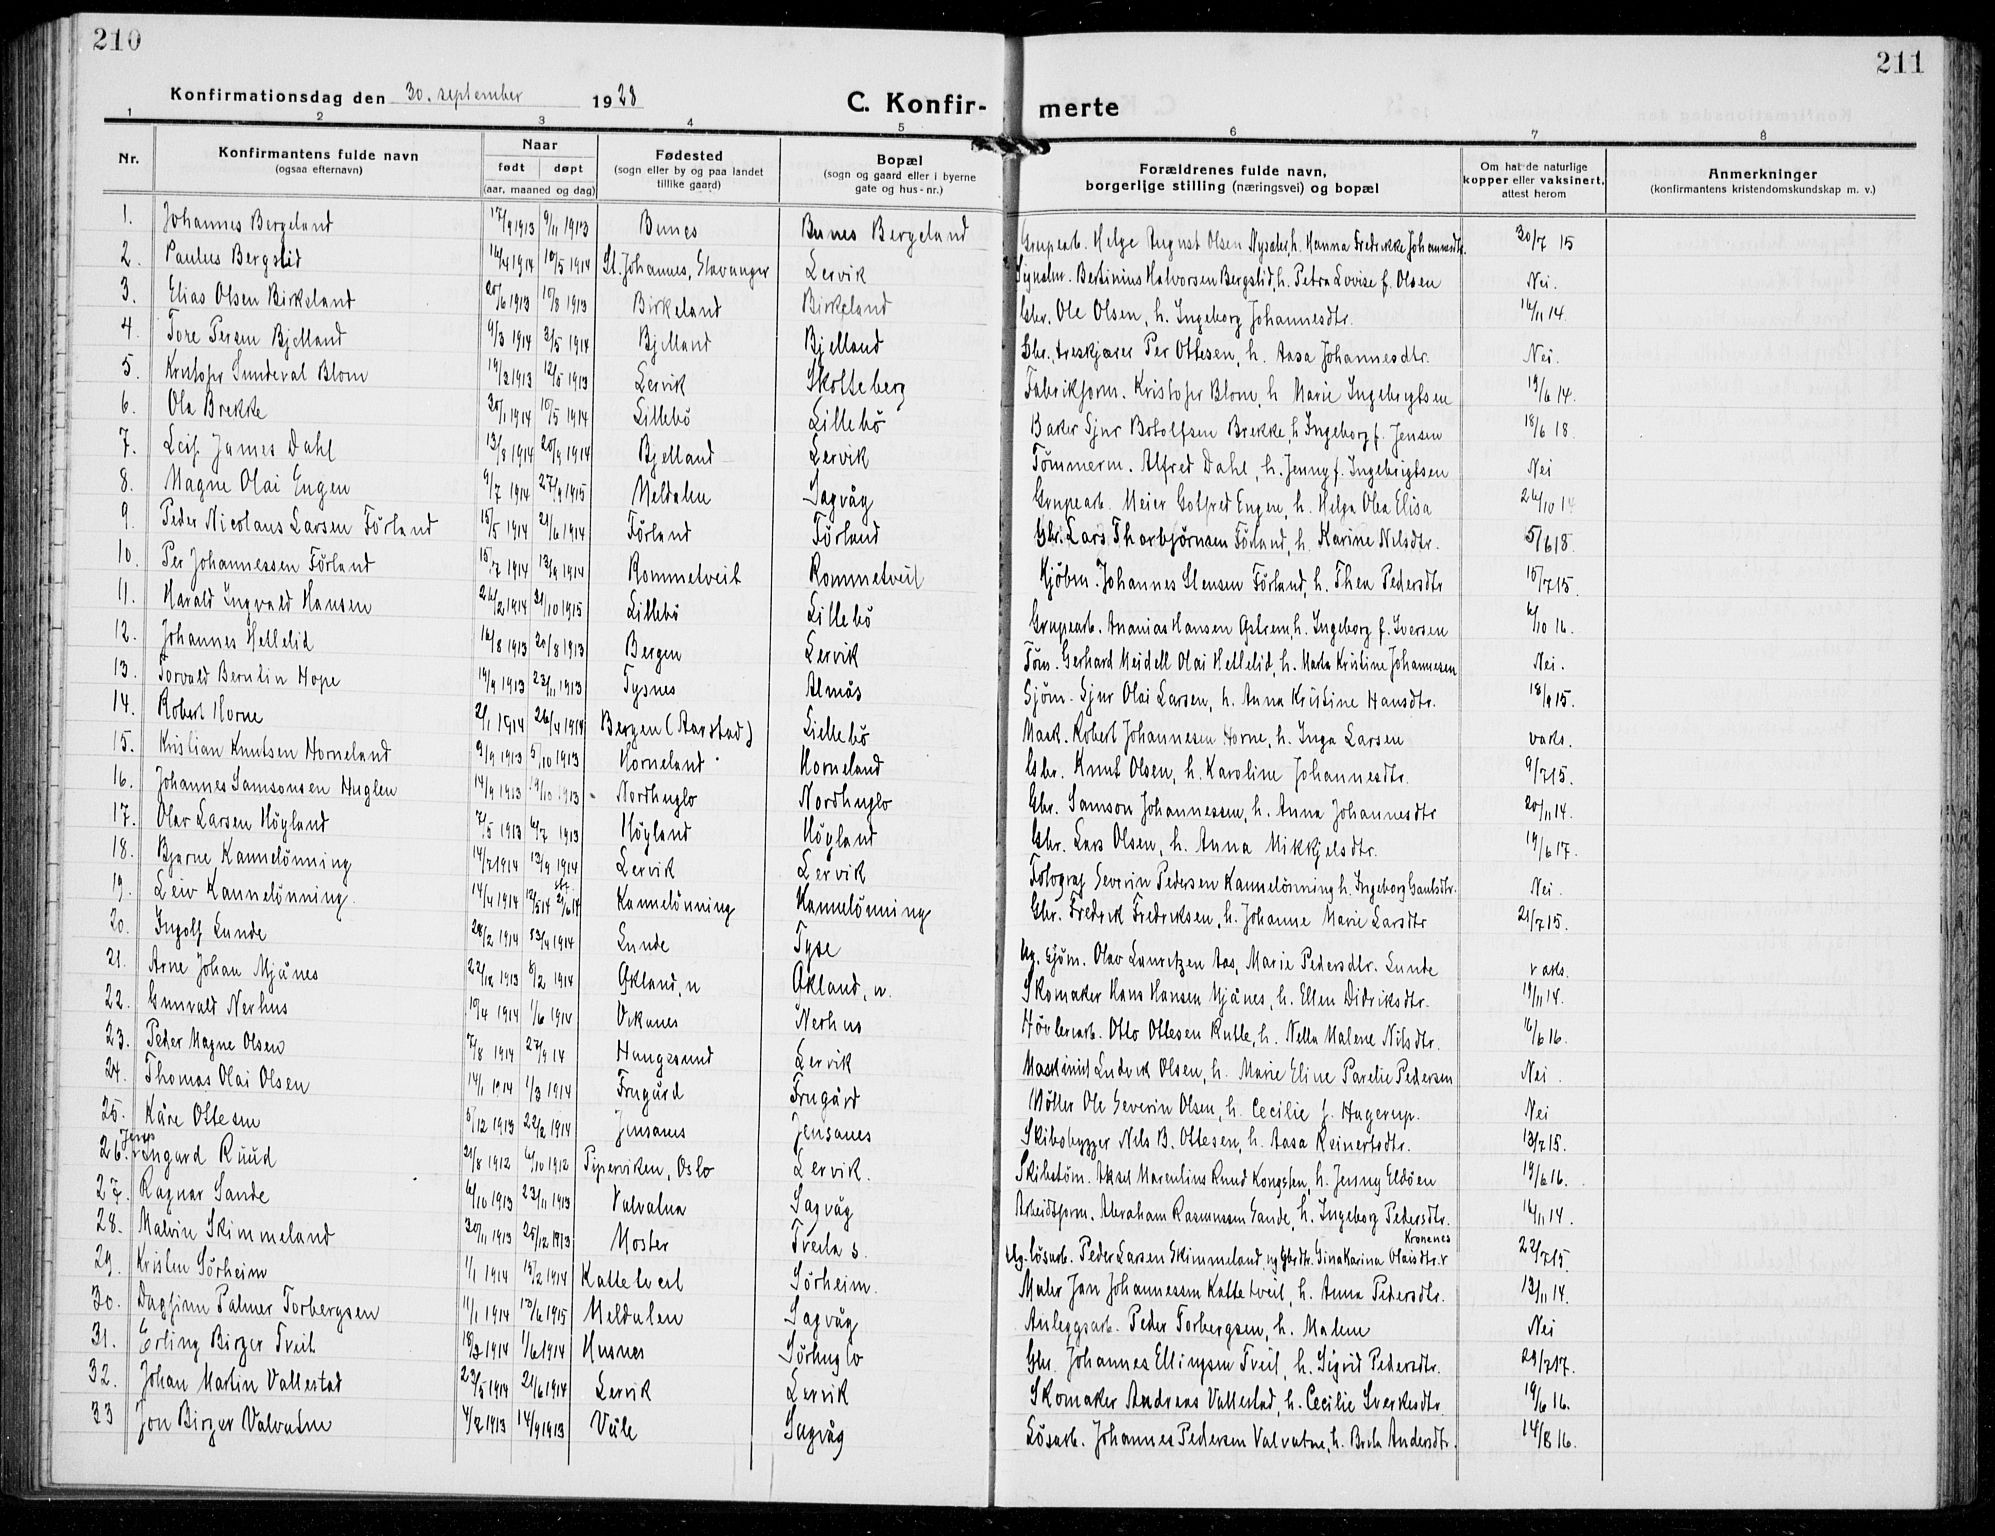 210
211
Konfirmationsdag den 30. september 1928
C. Konfir- merte
1 2 3 4 5 6 7 8
Nr. Konfirmantens fulde navn (ogsaa efternavn) Naar født døpt (aar, maaned og dag) Fødested (sogn eller by og paa landet tillike gaard) Bopæl (sogn og gaard eller i byerne gate og hus-nr.) Forældrenes fulde navn, borgerlige stilling (næringsvei) og bopæl Om hat de naturlige kopper eller vaksinert, attest herom Anmerkninger (konfirmantens kristendomskundskap m. v.)
1. Johannes Bergeland 17/9 1913 9/11 1913 Bunes Bunes Bergeland Grupearb. Helge August Olsen h. Hanna Fredrikke Johannesdtr. 30/7 15
2. Paulus Bergslid 16/4 1914 10/5 1914 St. Johannes, Stavanger Lervik Bertinius Halvorsen Bergslid, h. Petra Lovise f. Olsen Nei.
3. Elias Olsen Birkeland 20/6 1913 10/8 1913 Birkeland Birkeland Gbr. Ole Olsen, h. Ingeborg Johannesdtr. 16/11 14.
4. Tore Persen Bjelland 9/3 1914 3/5 1914 Bjelland Bjelland Gbr., treskjærer Per Ottesen, h. Aasa Johannesdtr. Nei.
5. Kristofer Sundeval Blom 19/3 1913 12/5 1913 Lervik Skotteberg Fabrikform. Kristofer Blom, h Marie Ingebrigtsen 19/6 14.
6. Ola Brekke 30/1 1914 10/5 1914 Lillebö Lillebö Baker Sjur Botolfsen Brekke, h Ingeborg f. Jensen 18/6 18.
7. Leif James Dahl 13/8 1914 20/9 1914 Bjelland Lervik Tömmerm. Alfred Dahl, h. Jenny f. Ingebrigtsen Nei
8. Magne Olai Engen 9/7 1914 27/9 1915 Meldalen Sagvåg Grupearb. Meier Gotfred Engen, h. Helga Olea Elisa 26/10 14
9. Peder Nicolaus Larsen Förland 15/5 1914 21/6 1914 Förland Förland Gbr. Lars Thorbjörnsen Förland, h. Karine Nelsdtr. 5/6 18.
10. Per Johannessen Förland 15/7 1914 13/9 1914 Rommetveit Rommetveit Kjöbm. Johannes Stensen Förland, h. Thea Pedersdtr 15/7 15.
11. Harald Ingvald Hansen 26/2 1914 31/10 1915 Lillebö Lillebö Grupearb. Ananias Hansen h. Ingeborg f. Iversen 6/10 16.
12. Johannes Hellelid 16/8 1913 20/8 1913 Bergen Lervik Töm. Gerhard Meidell Olai Hellelid, h. Marta Kristine Johannesen Nei.
13. Torvald Berntin Hope 19/9 1913 23/11 1913 Tysnes Almås Sjöm. Sjur Olai Larsen, h. Anna Kristine Hansdtr. 18/9 15.
14. Robert Horne 2/1 1914 26/4 1914 Bergen (Aarstad) Lillebö Mask. Robert Johannesen Horne, h. Inga Larsen vaks.
15. Kristian Knutsen Horneland 9/9 1913 5/10 1913 Horneland Horneland Gbr. Knut Olsen, h. Karoline Johannesdtr. 9/7 15.
16. Johannes Samsonsen Huglen 14/9 1913 19/10 1913 Nordhuglo Nordhuglo Gbr. Samson Johannessen, h. Anna Johannesdtr 20/11 14.
17. Olav Larsen Höyland 7/5 1913 6/7 1913 Höyland Höyland Gbr. Lars Olsen, h. Anna Mikkjelsdtr. 19/6 17.
18. Bjarne Kannelönning 14/7 1914 13/9 1914 Lervik Lervik Fotograf Severin Pedersen Kannelönning h. Ingeborg Nei.
19. Leiv Kannelönning. 14/4 1914 12/5 14 21/6 14 Kannelönning Kannelönning Gbr. Fredrik Fredriksen, h. Johanne Marie Larsdtr 21/7 15.
20. Ingolf Lunde 28/2 1914 13/4 1914 Lunde Tyse Ug. sjöm. Olav Lauritzen Aas, Marie Pedersdtr. Lunde vaks.
21. Arne Johan Mjånes 22/12 1913 8/2 1914 Økland, n Økland, n. Skomaker Hans Hansen Mjånes, h. Ellen Didriksdtr. 19/11 14.
22. Gunvald Nerhus 10/4 1914 1/6 1914 Vikanes Nerhus Hövleriarb. Otto Ottesen Rutle, h. Nella Malene Nilsdtr. 16/6 16.
23. Peder Magne Olsen 7/8 1914 27/9 14 Haugesund Lervik Maskinist Ludvik Olsen, h. Marie Eline Parelie Pedersen Nei.
24. Thomas Olai Olsen 14/1 1914 1/3 1914 Frugård Frugård Möller Ole Severin Olsen, h. Cecilie f. Hagerup. Nei
25. Kåre Ottesen 5/12 1913 22/2 1914 Jensanes Jensanes Skibsbygger Nils B. Ottesen, h. Aasa Reinertsdtr. 13/7 15.
26. Jens Ingard Ruud 21/8 1912 6/10 1912 Piperviken, Oslo Lervik. Skibstöm. Aksel Marenlius Ruud Kongsten, h. Jenny Eldöen 19/6 16.
27. Ragnar Sande 6/10 1913 23/11 1913 Valvatna Sagvåg Arbeidsform. Abraham Rasmussen Sande, h. Ingeborg Pedersdtr. 16/11 14.
28. Malvin Skimmeland 30/11 1913 25/12 1913 Moster Tveita s. Ug. lösarb. Peder Larsen Skimmeland, og Gbrdtr. Gina Karina Olaisdtr. Kronenes 22/7 15.
29. Kristen Sörheim 1/1 1914 15/2 1914 Katteteveit Sörheim. Maler Jan Johannessen Kattetveit, h. Anna Pedersdtr. 13/11 14.
30. Dagfinn Palmer Torbergsen 11/1 1914 13/6 1915 Meldalen Sagvåg Anleggsarb. Peder Torbergsen, h. Malene Nei
31. Erling Birger Tveit 18/3 1914 1/6 1914 Husnes Sörhuglo Gbr. Johannes Ellingsen Tveit, h. Sigrid Pedersdtr. 29/7 17.
32. Johan Martin Vallestad 23/5 1914 21/6 1914 Lervik Lervik Skomaker Andreas Vallestad, h. Cecilie Sverkesdtr 19/6 16.
33 Jon Birger Valvatne 4/2 1913 14/9 1913 Våle Sagvåg Lösarb. Johannes Pedersen Valvatne, h. Brita Andersdtr. 14/8 16.